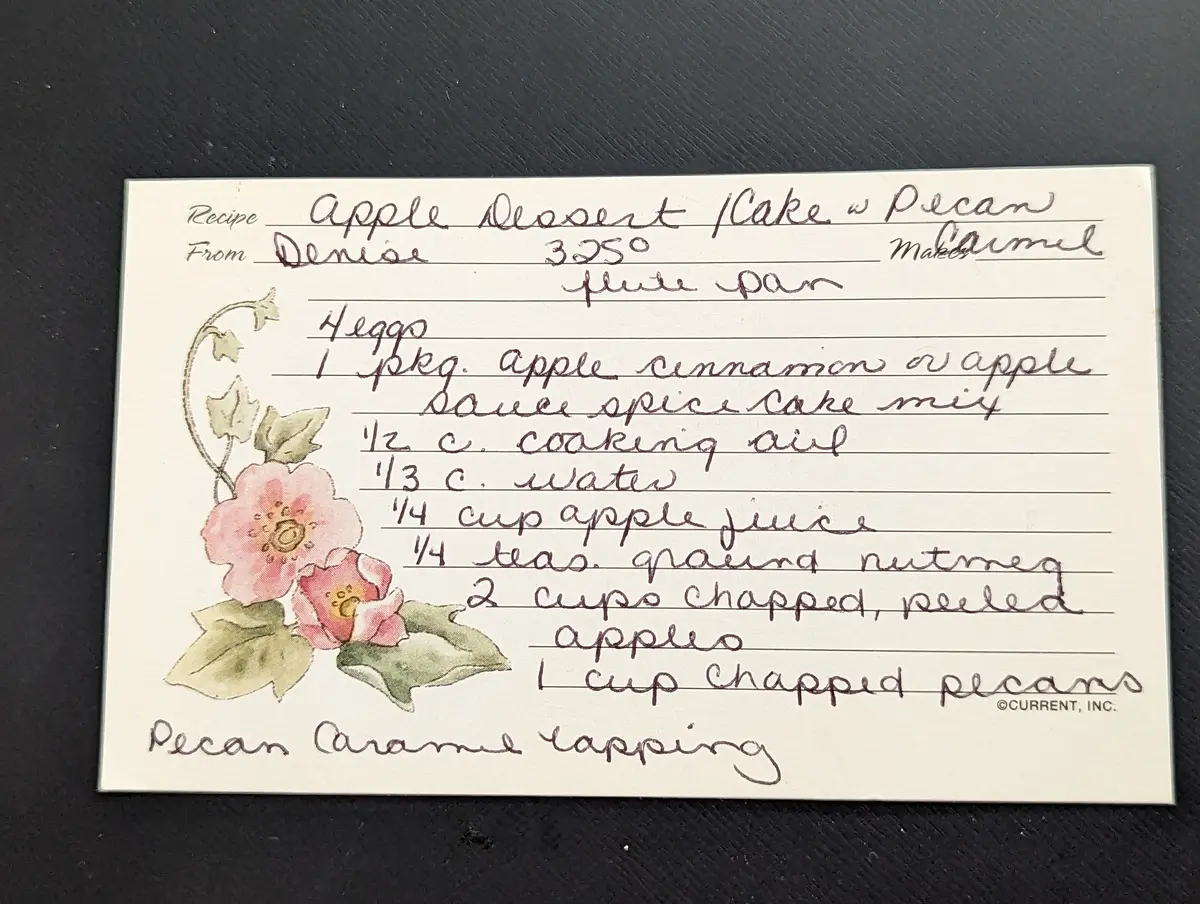 Recipe Apple Dessert / Cake w Pecan
From Denise 325° Makes Carmel
flute pan
4 eggs
1 pkg. apple cinnamon or apple
sauce spice cake mix
1/2 c. cooking oil
1/3 c. water
1/4 cup apple juice
1/4 teas. ground nutmeg
2 cups chopped, peeled
apples
1 cup chopped pecans
©CURRENT, INC.
Pecan Caramel topping